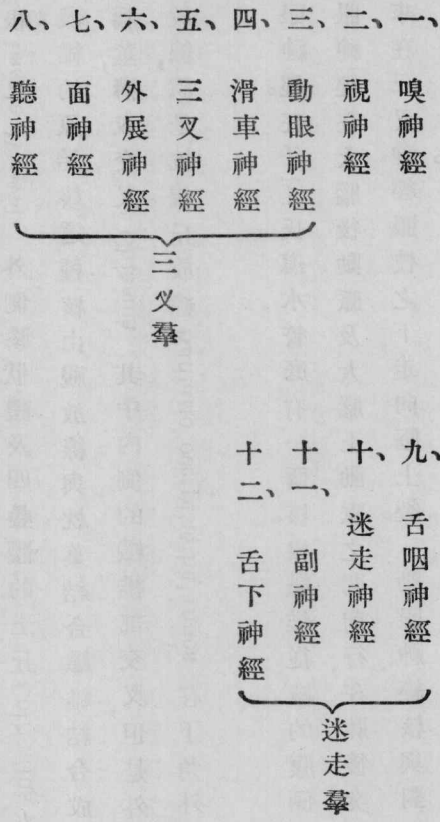 一、嗅神經
二、視神經
三、動眼神經
四、滑車神經
五、三叉神經
六、外展神經
七、面神經
八、聽神經
三叉羣
九、舌咽神經
十、迷走神經
十一、副神經
十二、舌下神經
迷走羣